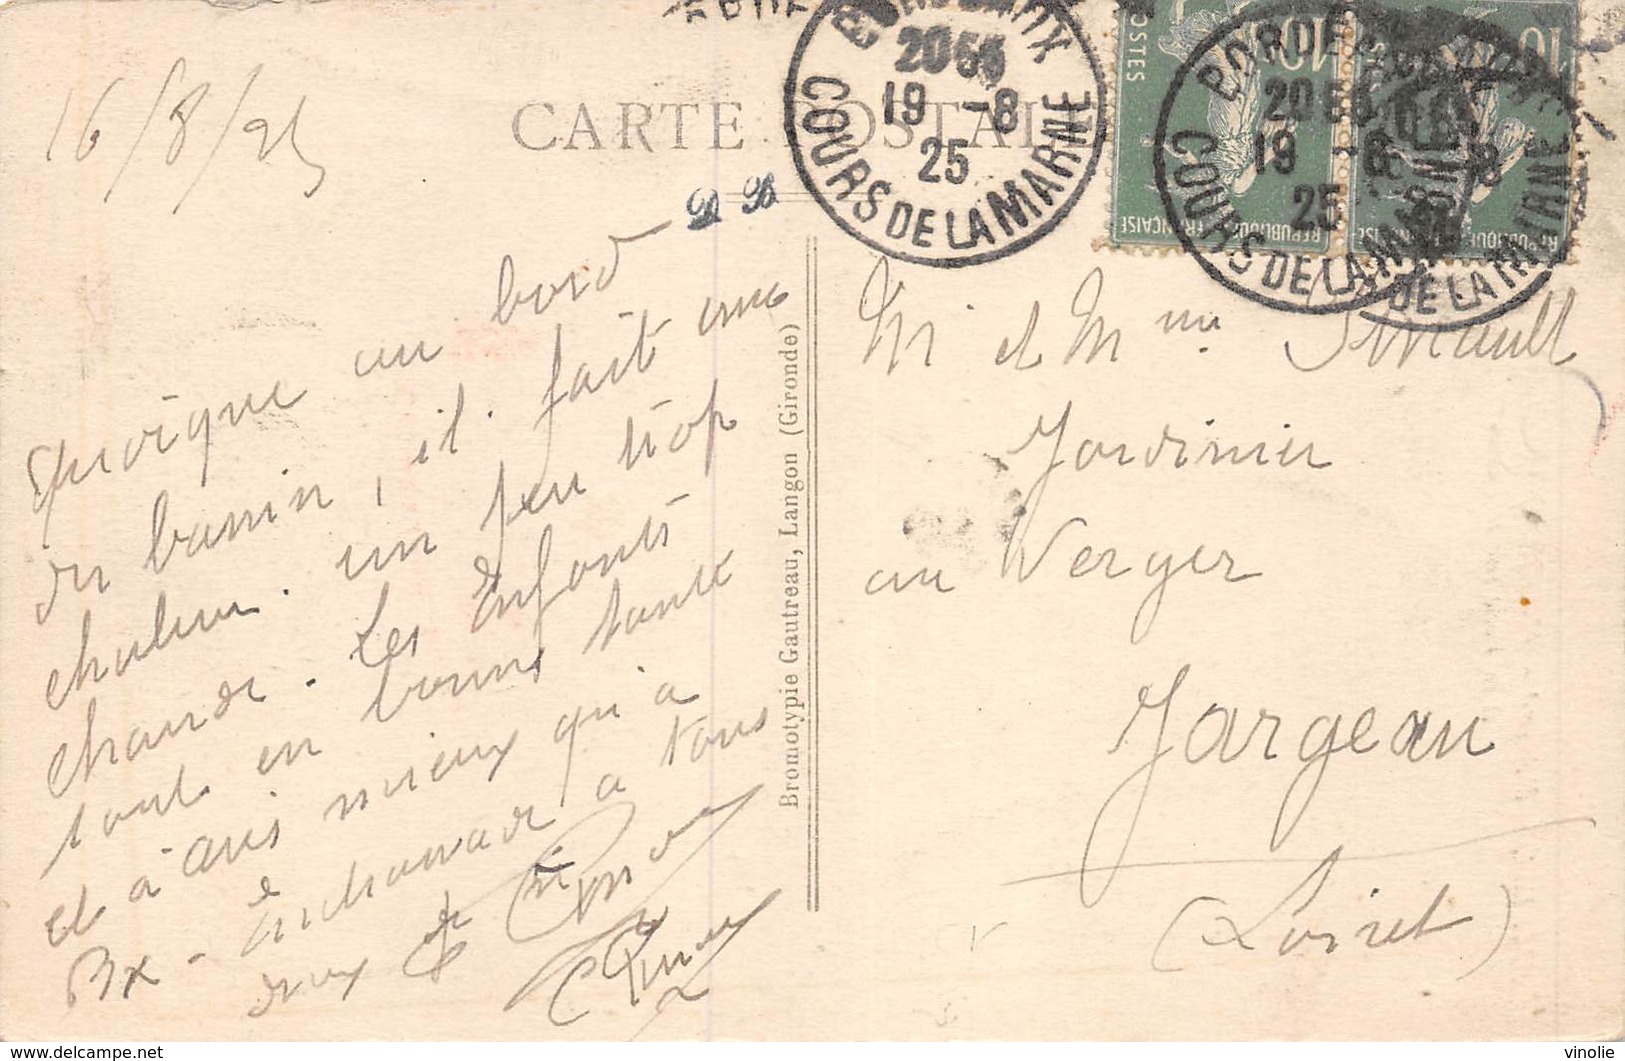 16/8/25
CARTE POSTALE
BORDEAUX
20 55
19 -8
25
COURS DE LA MARNE
BORDEAUX
19
25
COURS DE LA MARNE
DE LA MARNE
POSTES
10
10
RÉPUBLIQUE FRANÇAISE
RÉPUBLIQUE
Quoique au bord
du bassin, il fait une
chaleur un peu trop
chaude. Les Enfants
sont en bonne santé
et à Arès mieux qu'à
Bx - Embrassade à tous
deux
Bromotypie Gautreau, Langon (Gironde)
M et Mme
Jardinier
au Verger
Jargeau
(Loiret)
vinolie